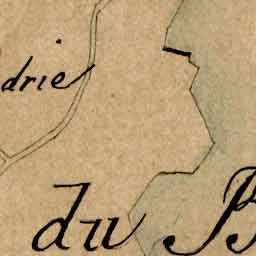 drie
du B